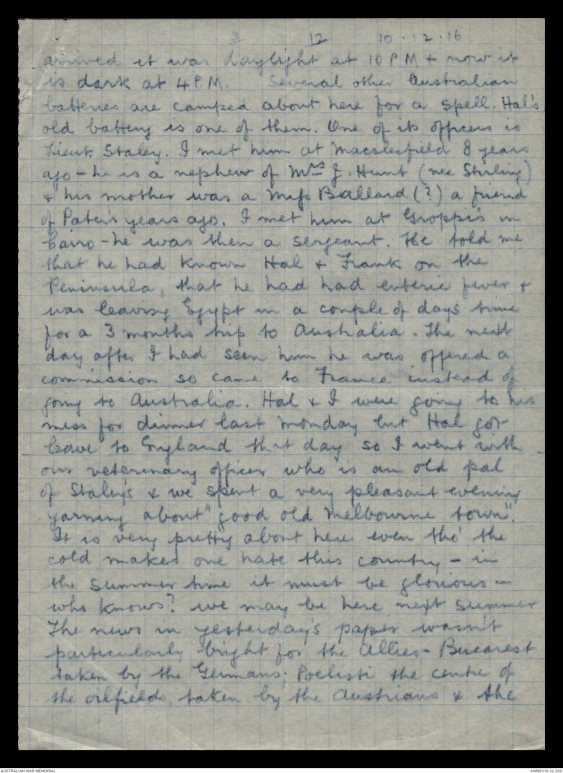 3 12 10.12.16
arrived it was daylight at 10 PM & now it
is dark at 4 P.M. Several other Australian
batteries are camped about here for a spell. Hal's
old battery is one of them. One of its officers is
Lieut. Staley. I met him at Macclesfield 8 years
ago - he is a nephew of Mrs J. Hunt (nee Stirling)
& his mother was a Miss Ballard (?) a friend
of Pater's years ago. I met him at Groppis in
Cairo - he was then a sergeant. He told me
that he had known Hal & Frank on the
Peninsula, that he had had enteric fever &
was leaving Egypt in a couple of days time
for a 3 months trip to Australia. The next
day after I had seen him he was offered a
commission so came to France instead of
going to Australia. Hal & I were going to his
mess for dinner last Monday but Hal got
leave to England that day so I went with
our veterinary officer who is an old pal
of Staley's & we spent a very pleasant evening
yarning about "good old Melbourne town".
It is very pretty about here even tho' the
cold makes one hate this country - in
the summer time it must be glorious -
who knows? we may be here next summer
The news in yesterday's paper wasn't
particularly bright for the Allies - Bucarest
taken by the Germans; Poelisti the centre of
the oilfields, taken by the Austrians & the
AUSTRALIAN WAR MEMORIAL